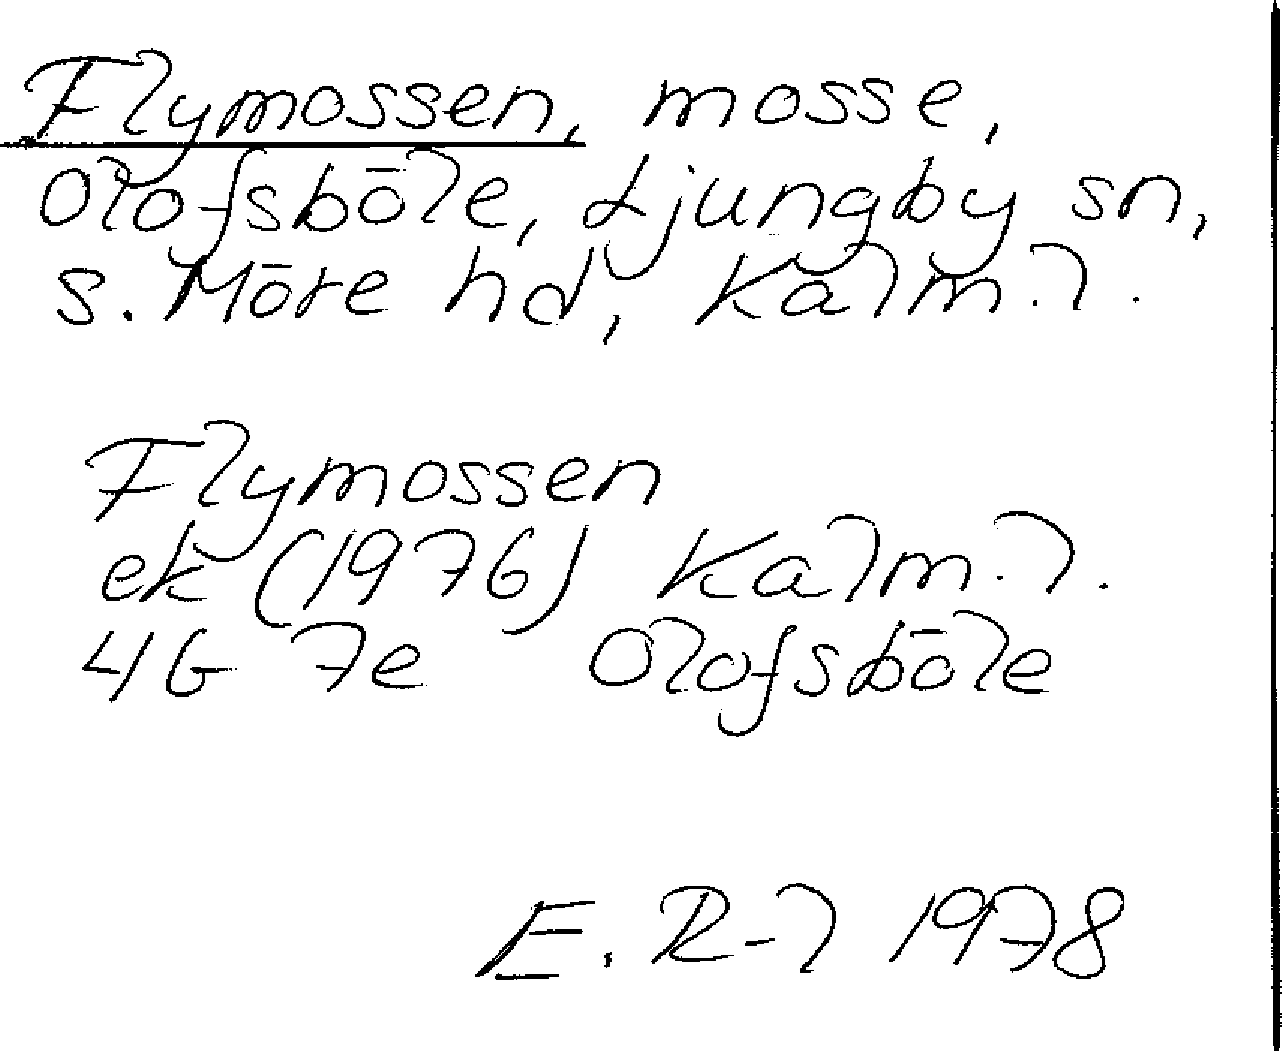 Flymossen, mosse,
Olofsböle, Ljungby sn,
S. Möre hd, Kalm. l.
Flymossen
ek (1976) Kalm. l.
4G 7e Olofsböle
E. R-l 1978